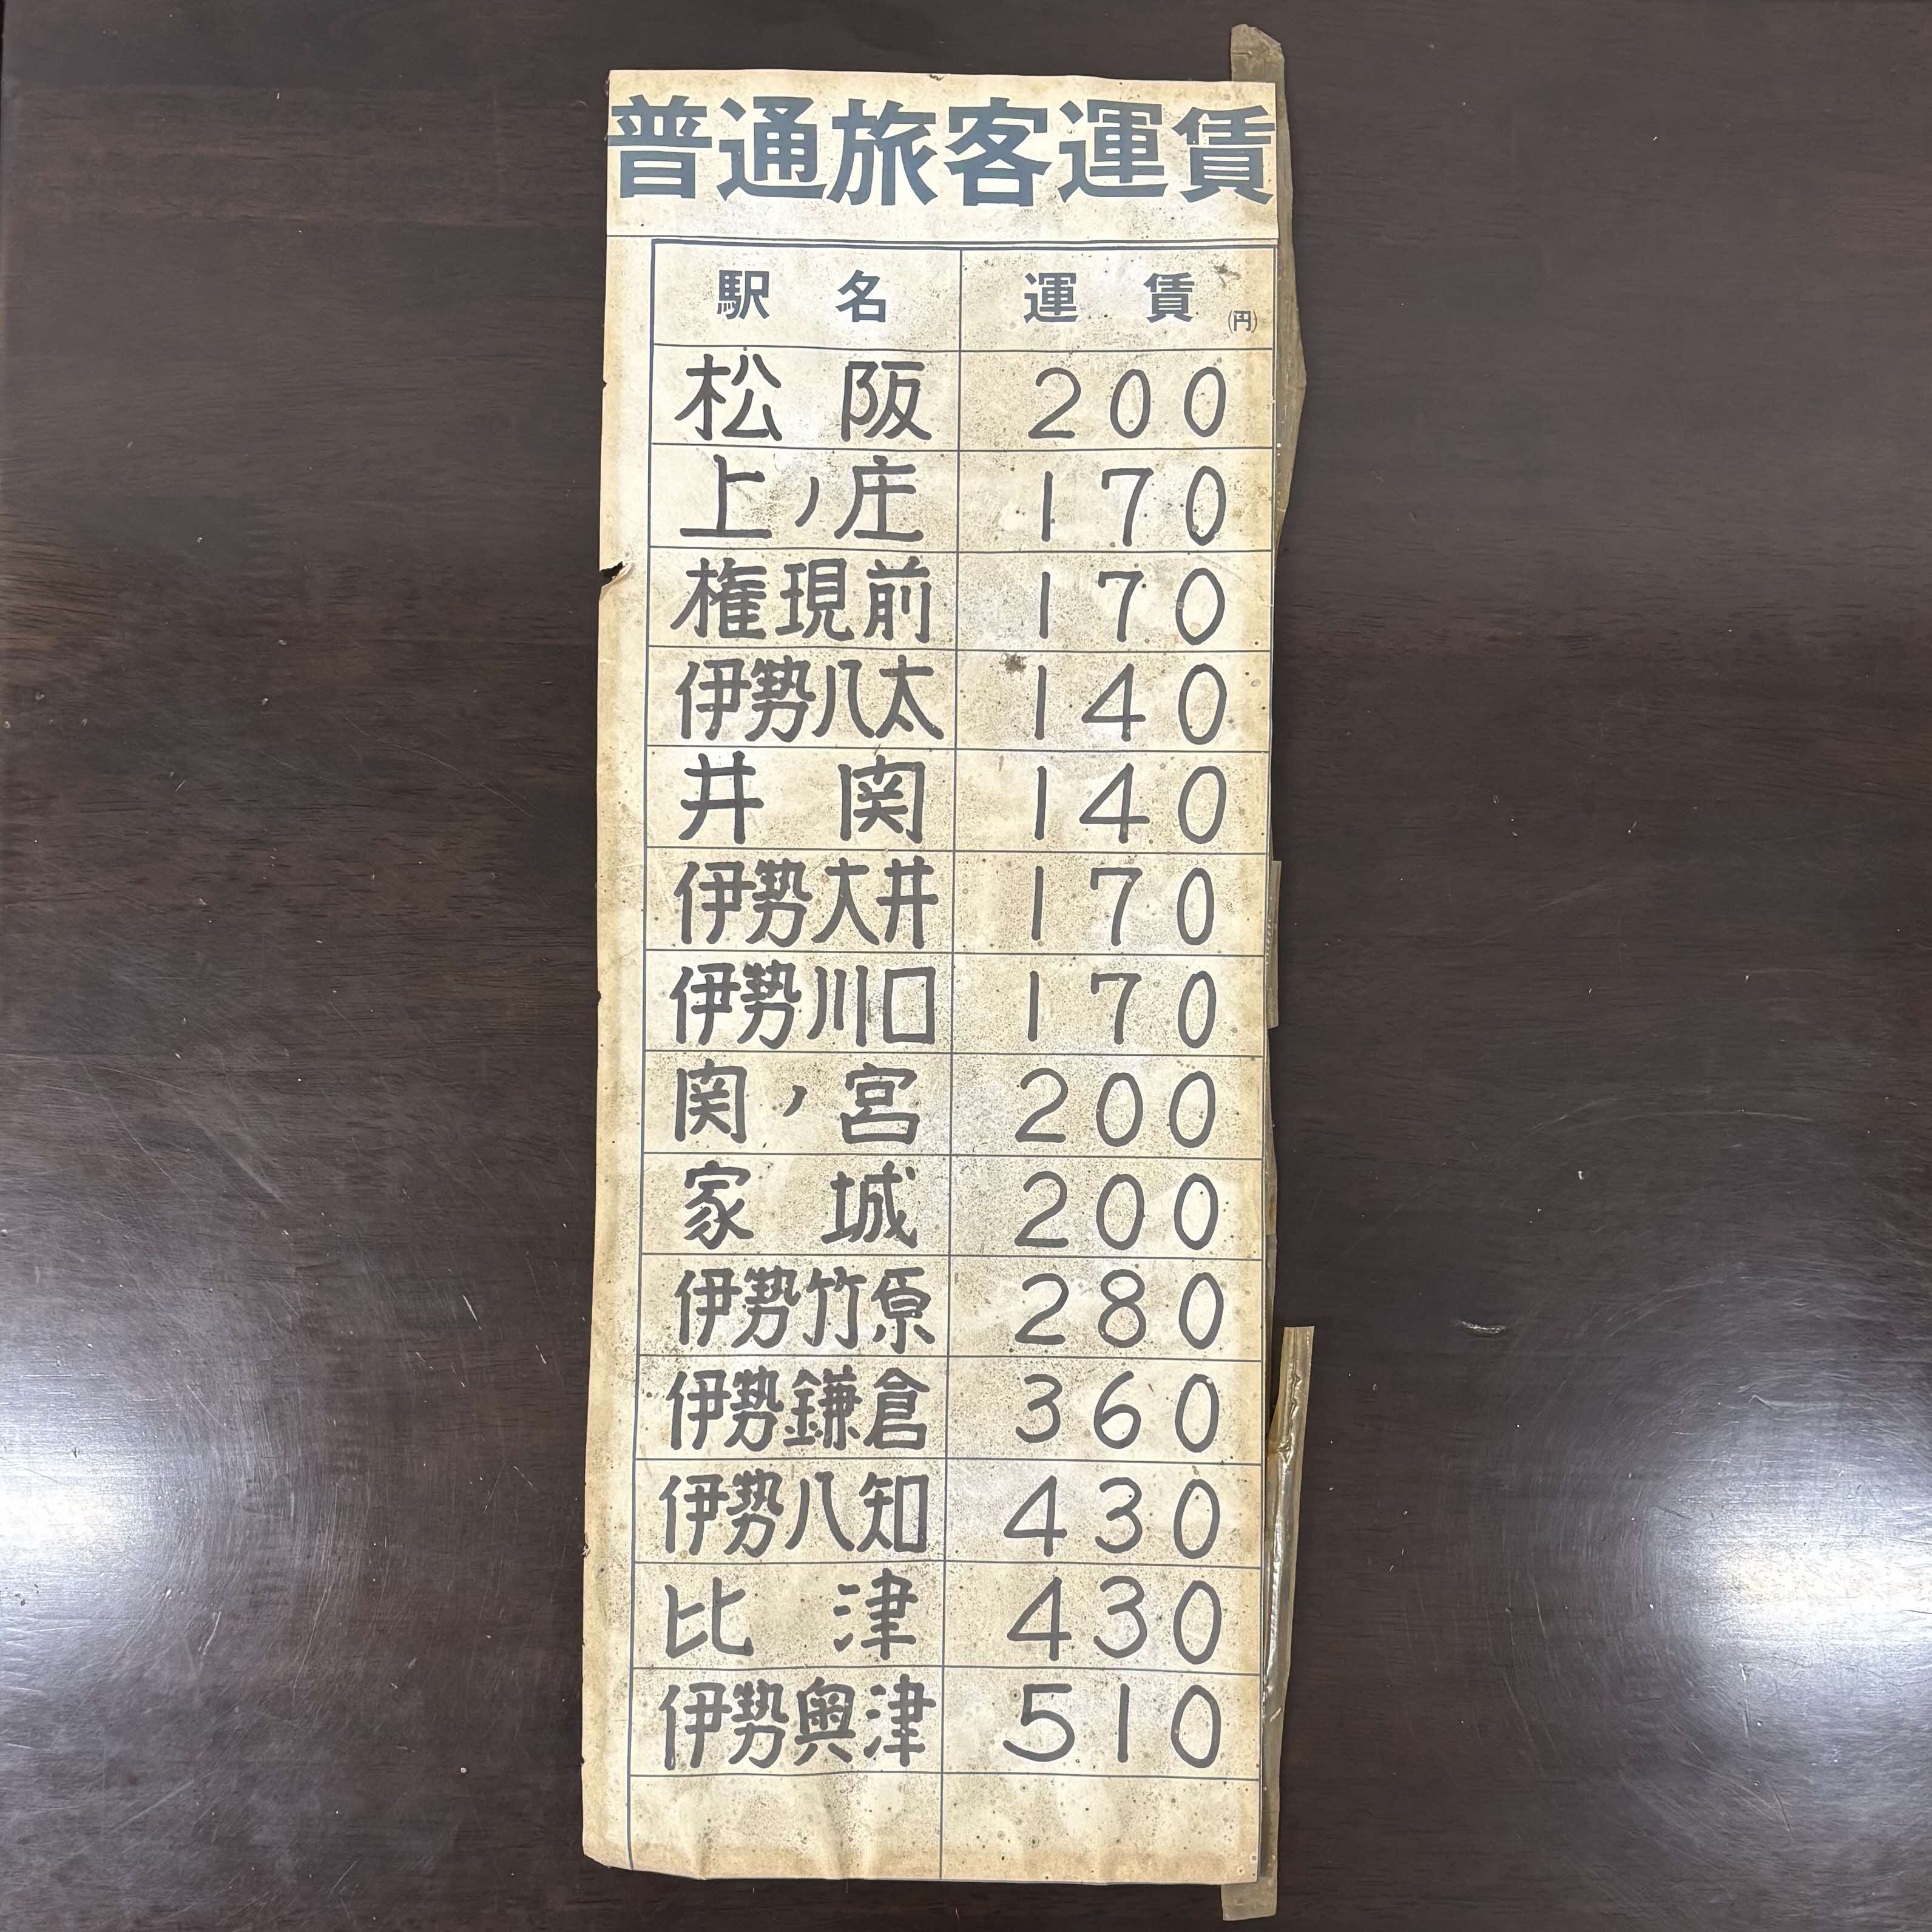 普通旅客運賃
駅名 運賃(円)
松阪 200
上ノ庄 170
権現前 170
伊勢八太 140
井関 140
伊勢大井 170
伊勢川口 170
関ノ宮 200
家城 200
伊勢竹原 280
伊勢鎌倉 360
伊勢八知 430
比津 430
伊勢奥津 510